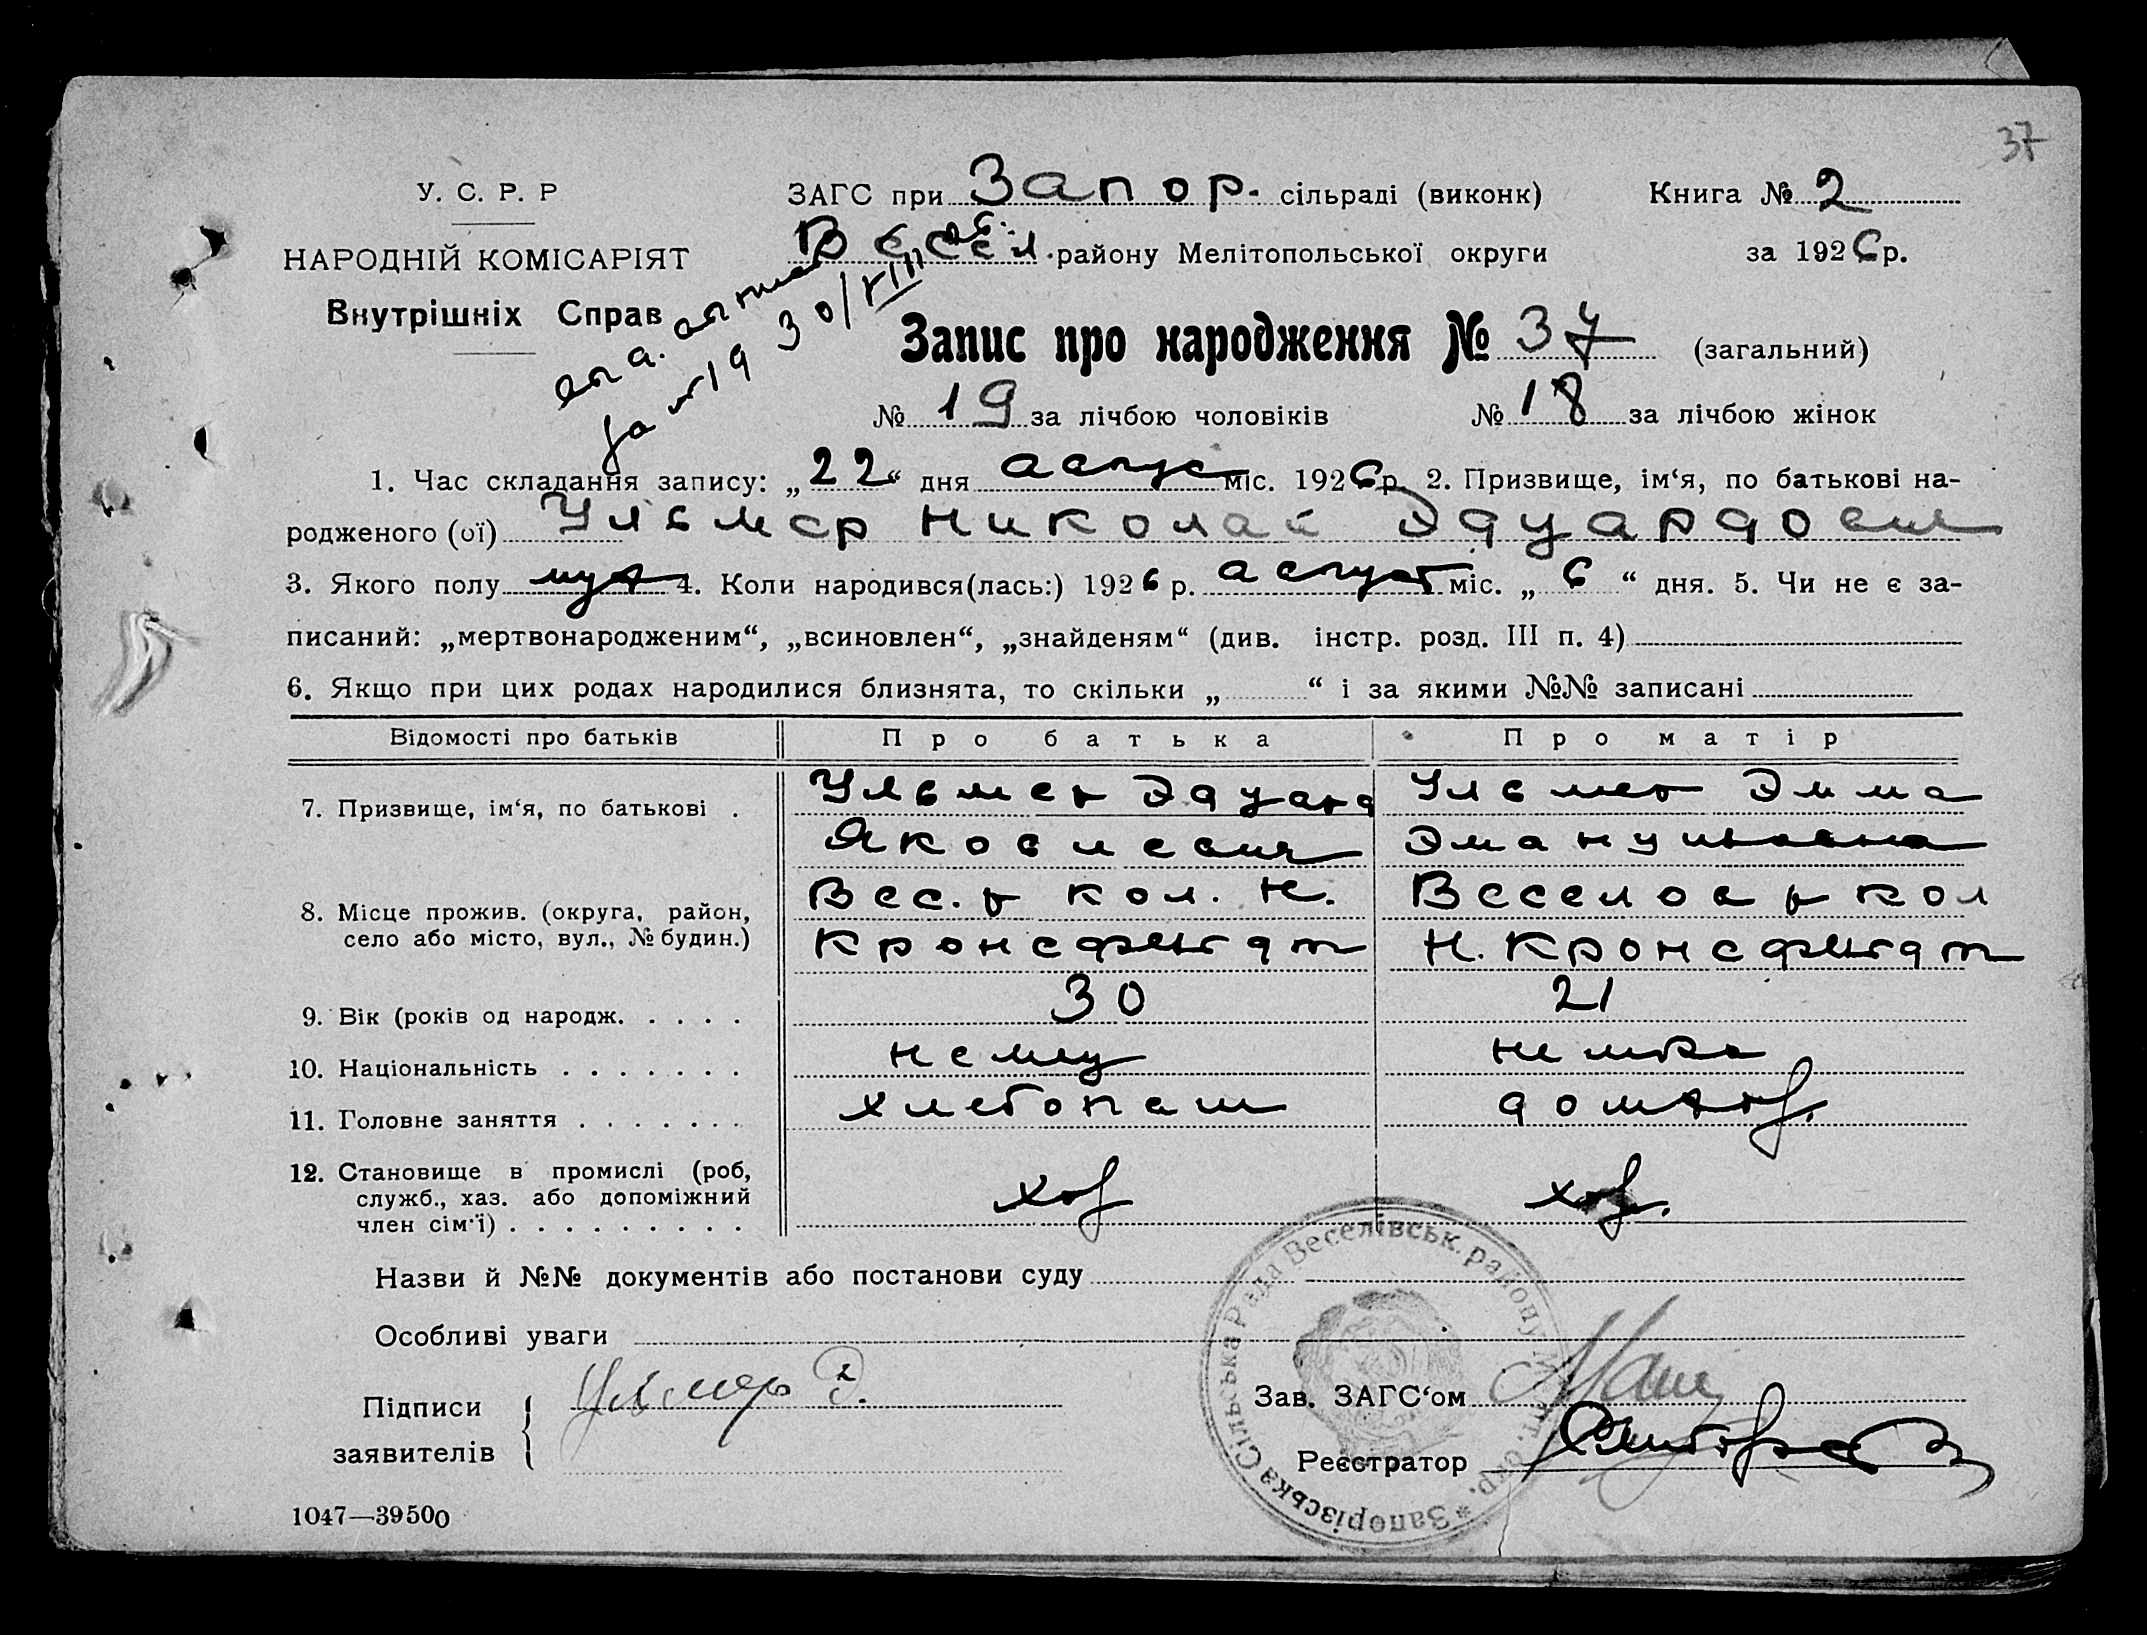 37
У. С. Р. Р
НАРОДНІЙ КОМІСАРІЯТ
Внутрішніх Справ
ЗАГС при Запор. сільраді (виконк)
Весел. району Мелітопольської округи
Книга № 2
за 1926 р.
30/VIII
за №19
Запис про народження № 37 (загальний)
№ 19 за лічбою чоловіків № 18 за лічбою жінок
1. Час складання запису: „22“ дня август міс. 1926 р. 2. Призвище, ім‘я, по батькові на-
родженого (ої) Ульмер Николай Эдуардович
3. Якого полу муж 4. Коли народився(лась:) 1926 р. август міс. „6“ дня. 5. Чи не є за-
писаний: „мертвонародженим“, „всиновлен“, „знайденям“ (див. інстр. розд. III п. 4)
6. Якщо при цих родах народилися близнята, то скільки „ “ і за якими №№ записані
Відомості про батьків Про батька Про матір
7. Призвище, ім‘я, по батькові . Ульмер Эдуард Ульмер Эмма
Яковлевич Эмануиловна
8. Місце прожив. (округа, район, село або місто, вул., № будин.) Вес. р кол. Н. Веселое р кол
Кронсфельдт Н. Кронсфельдт
9. Вік (років од народж. . . . . 30 21
10. Національність . . . . . . . немец немка
11. Головне заняття . . . . . . . хлебопаш домхоз.
12. Становище в промислі (роб, служб., хаз. або допоміжний член сім‘ї) . . . . . . . . . хоз хоз.
Назви й №№ документів або постанови суду
Особливі уваги
Підписи заявителів Ульмер Э.
Зав. ЗАГС‘ом
Реєстратор
Запорізська Сільська Рада Веселівськ. району Меліт. окр. *
1047—39500